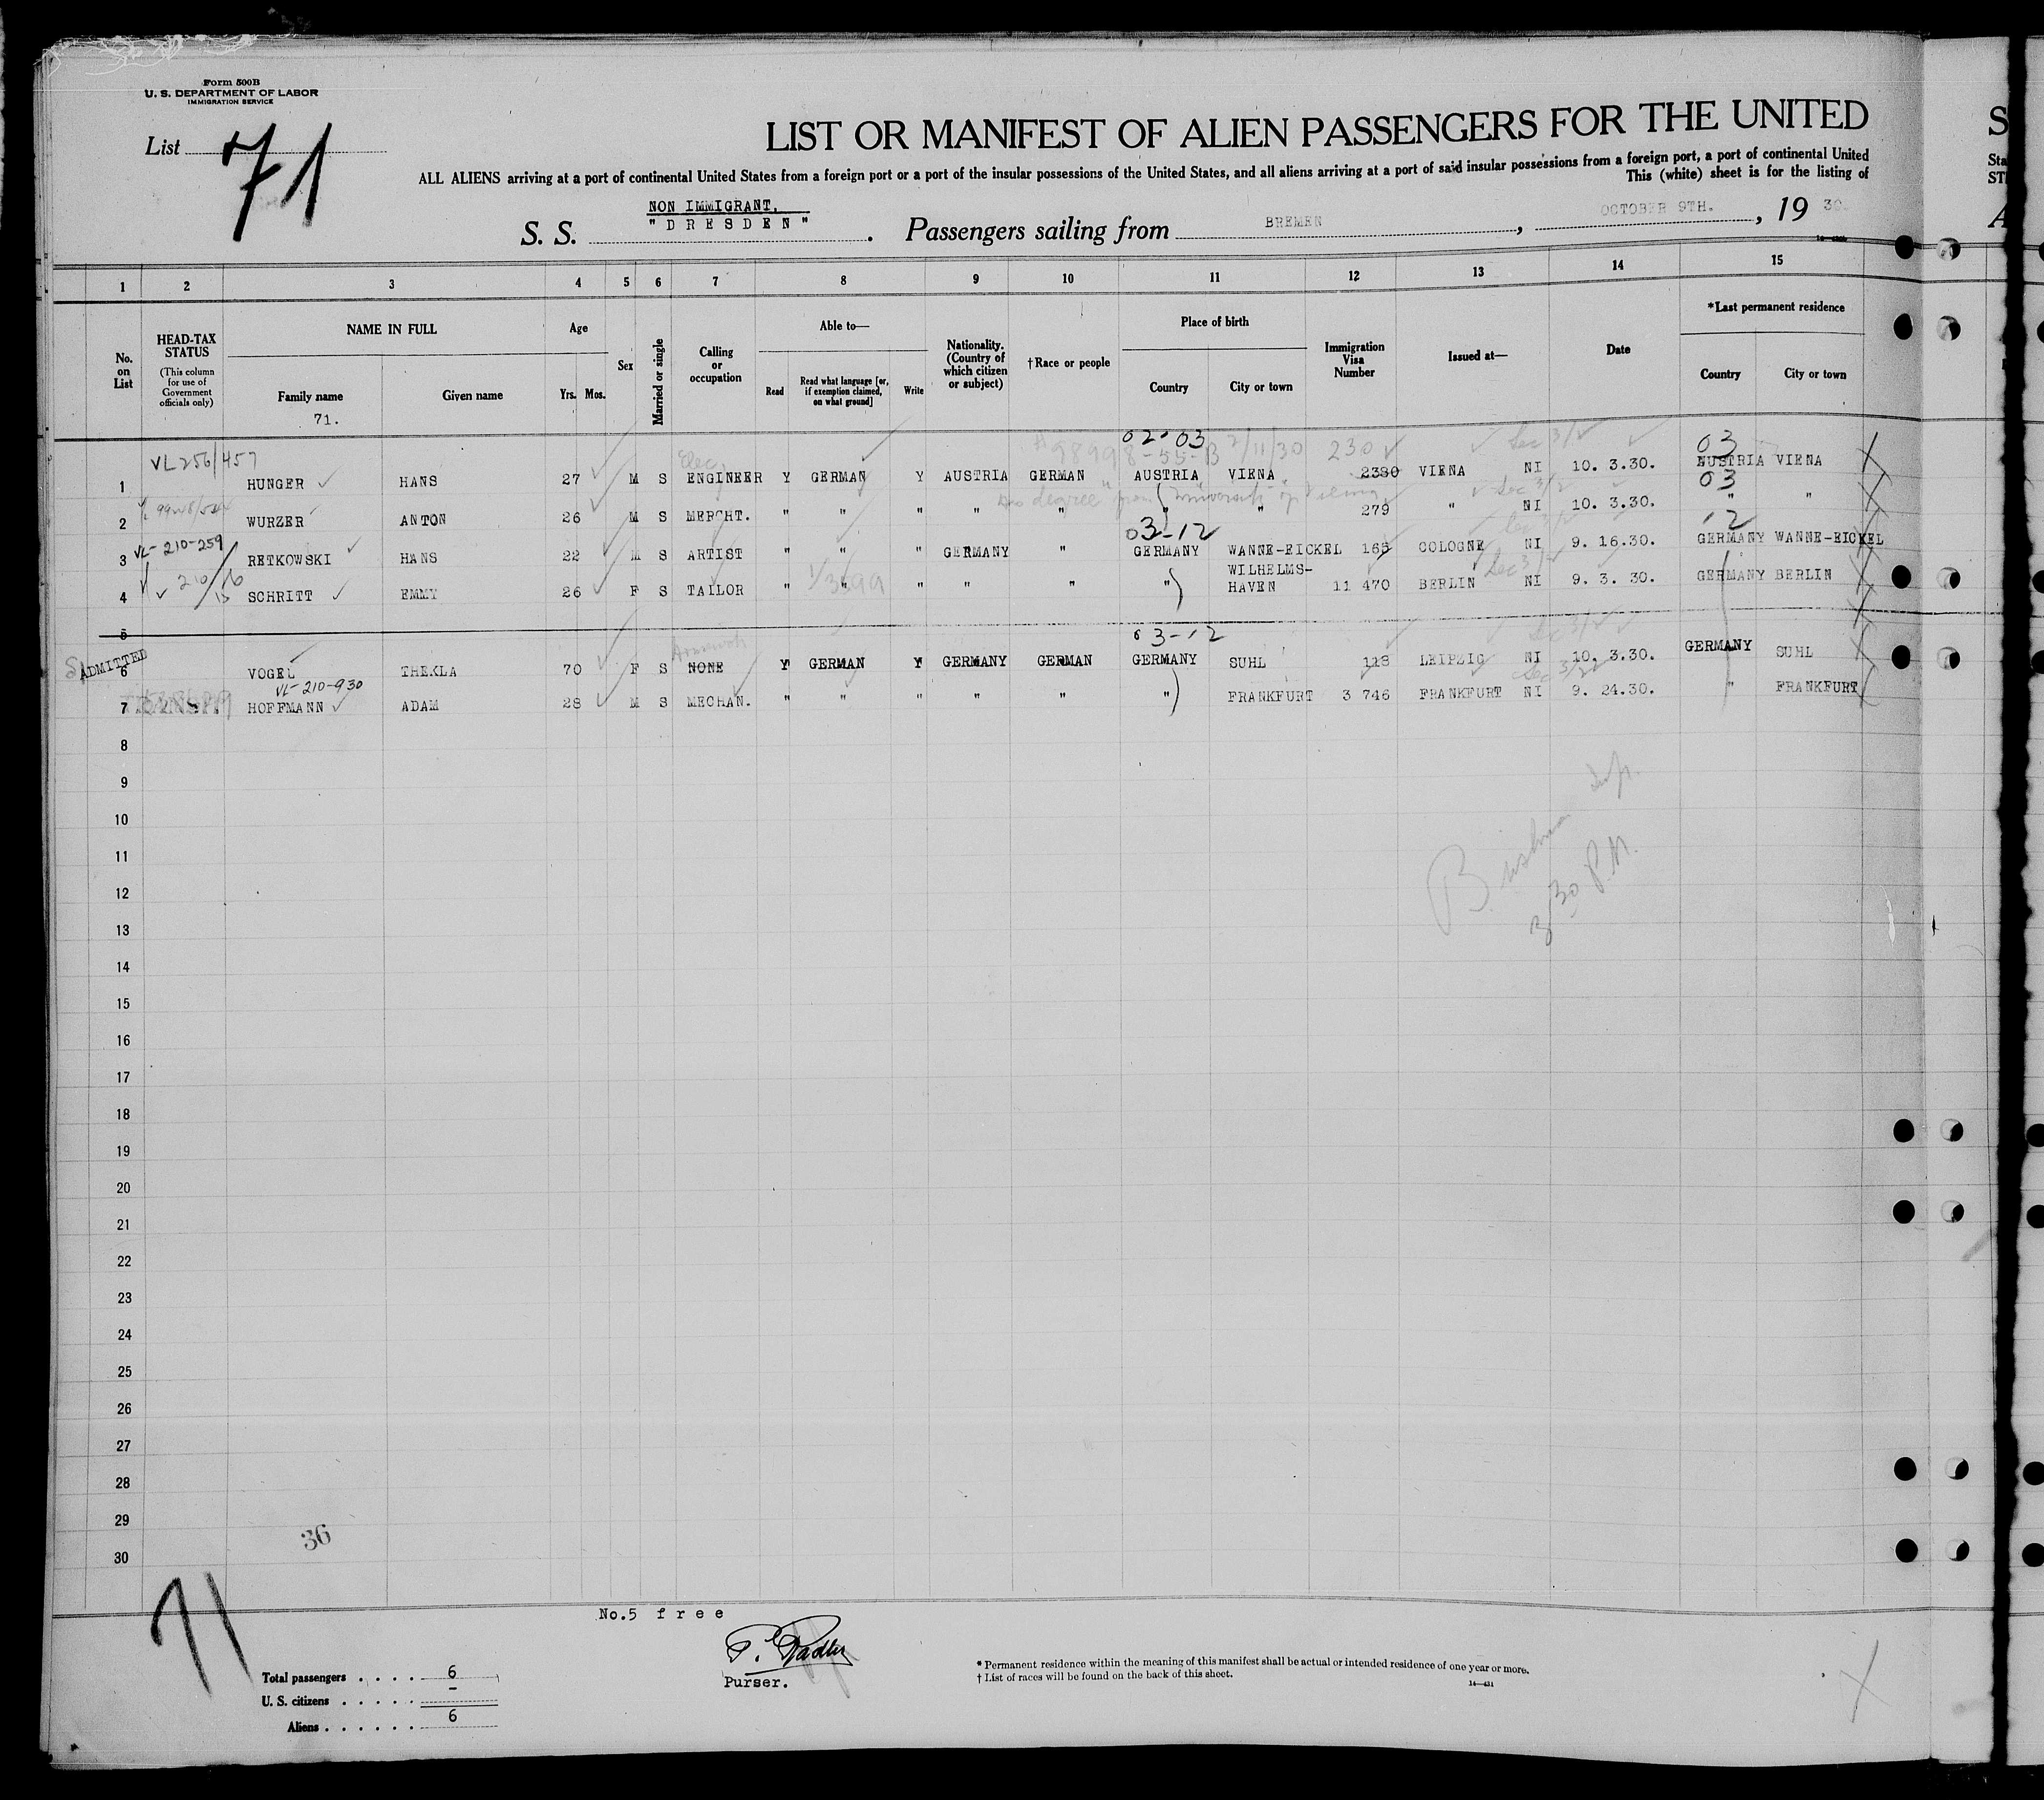 Form 500B
U. S. DEPARTMENT OF LABOR
IMMIGRATION SERVICE
List 71
LIST OR MANIFEST OF ALIEN PASSENGERS FOR THE UNITED
ALL ALIENS arriving at a port of continental United States from a foreign port or a port of the insular possessions of the United States, and all aliens arriving at a port of said insular possessions from a foreign port, a port of continental United
This (white) sheet is for the listing of
NON IMMIGRANT.
S. S. "DRESDEN". Passengers sailing from BREMEN, OCTOBER 9TH., 1930.
1 2 3 4 5 6 7 8 9 10 11 12 13 14 15
No. on List
HEAD-TAX STATUS
(This column for use of Government officials only)
NAME IN FULL
Family name
Given name
71.
Age
Yrs. Mos.
Sex
Married or single
Calling or occupation
Able to—
Read
Read what language [or, if exemption claimed, on what ground]
Write
Nationality. (Country of which citizen or subject)
†Race or people
Place of birth
Country
City or town
Immigration Visa Number
Issued at—
Date
*Last permanent residence
Country
City or town
02-03 2/11/30 230 03
VL 256/457 Elec
1 HUNGER HANS 27 M S ENGINEER Y GERMAN Y AUSTRIA GERMAN AUSTRIA VIENA 2380 VIENA NI 10. 3.30. AUSTRIA VIENA
03
2 WURZER ANTON 26 M S MERCHT. " " " " " " " 279 " NI 10. 3.30. " "
VL-210-259 03-12 12
3 RETKOWSKI HANS 22 M S ARTIST " " " GERMANY " GERMANY WANNE-EICKEL 165 COLOGNE NI 9. 16.30. GERMANY WANNE-EICKEL
4 SCHRITT EMMY 26 F S TAILOR " " " " " " WILHELMS-HAVEN 11 470 BERLIN NI 9. 3. 30. GERMANY BERLIN
5
03-12
ADMITTED
6 VOGEL THEKLA 70 F S NONE Y GERMAN Y GERMANY GERMAN GERMANY SUHL 118 LEIPZIG NI 10. 3.30. GERMANY SUHL
VL-210-930
7 HOFFMANN ADAM 28 M S MECHAN. " " " " " " FRANKFURT 3 746 FRANKFURT NI 9. 24.30. " FRANKFURT
8
9
10
11
12
13
3 30 P.M.
14
15
16
17
18
19
20
21
22
23
24
25
26
27
28
29
36
30
71
No.5 free
Purser.
Total passengers . . . . 6
U. S. citizens . . . . . –
Aliens . . . . . . 6
* Permanent residence within the meaning of this manifest shall be actual or intended residence of one year or more.
† List of races will be found on the back of this sheet.